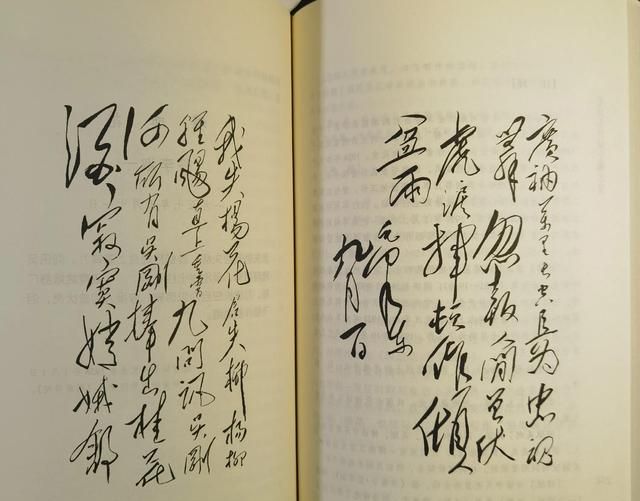 我失楊花君失柳楊柳
輕颺直上重霄九問訊吳剛
何所有吳剛捧出桂花
酒寂寞嫦娥舒
廣袖萬里長空且為忠魂
舞忽報人間曾伏
虎淚飛頓作傾
盆雨
毛澤東
九月一日